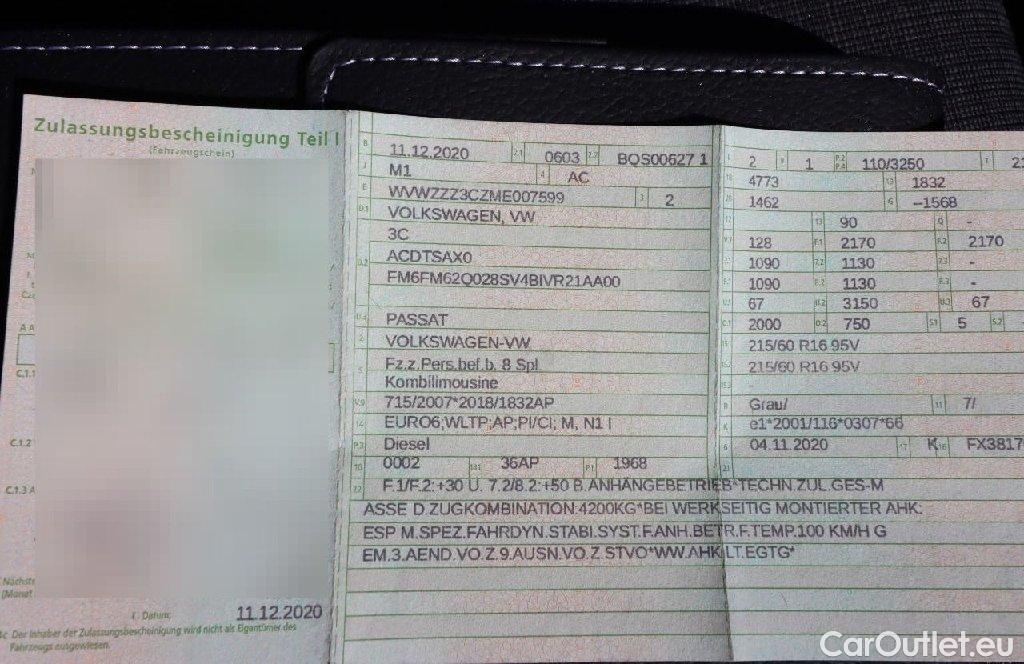 Zulassungsbescheinigung Teil I
(Fahrzeugschein)
C.1.1
C.1.2
C.1.3
Nächste
(Monat
I Datum: 11.12.2020
4c Der Inhaber der Zulassungsbescheinigung wird nicht als Eigentümer des
Fahrzeugs ausgewiesen.
B 11.12.2020 2.1 0603 2.2 BQS00627 1
J M1 4 AC
E WVWZZZ3CZME007599 3 2
D.1 VOLKSWAGEN, VW
3C
D.2 ACDTSAX0
FM6FM62Q028SV4BIVR21AA00
PASSAT
2 VOLKSWAGEN-VW
5 Fz.z.Pers.bef.b. 8 Spl
Kombilimousine
V.9 715/2007*2018/1832AP
14 EURO6;WLTP;AP;PI/CI; M, N1 I
P.3 Diesel
10 0002 14.1 36AP P.1 1968
22 F.1/F.2: +30 U. 7.2/8.2:+50 B.ANHÄNGEBETRIEB*TECHN.ZUL.GES-M
ASSE D.ZUGKOMBINATION:4200KG*BEI WERKSEITIG MONTIERTER AHK:
ESP M.SPEZ.FAHRDYN.STABI.SYST.F.ANH.BETR.F.TEMP.100 KM/H G
EM.3.AEND.VO.Z.9.AUSN.VO.Z.STVO*WW.AHK LT.EGTG*
2 9 1 P.2 P.4 110/3250 T 21
18 4773 19 1832
20 1462 G –1568
12 - 13 90 Q -
V.7 128 F.1 2170 F.2 2170
1090 7.2 1130 7.3 -
1090 8.2 1130 8.3 -
U.1 67 U.2 3150 U.3 67
O.1 2000 O.2 750 S.1 5 S.2
215/60 R16 95V
215/60 R16 95V
-
R Grau/ 11 7/
K e1*2001/116*0307*66
6 04.11.2020 17 K 16 FX3817
21
CarOutlet.eu